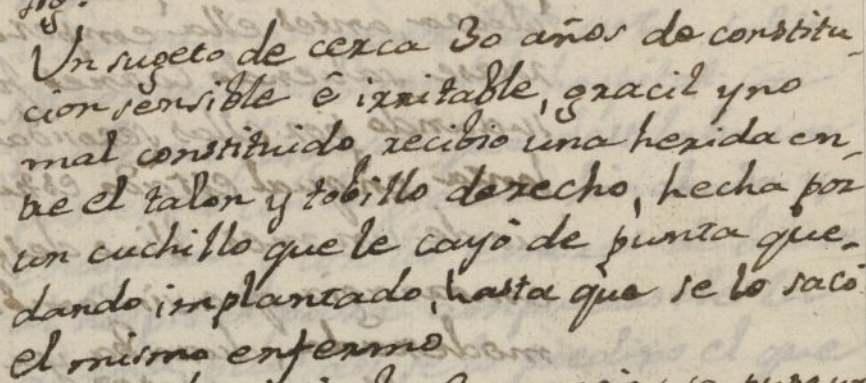 Un sugeto de cerca 30 años de constitu-
cion sensible é irritable, gracil y no
mal constituido, recibio una herida en-
tre el talon y tobillo derecho, hecha por
un cuchillo que le cayó de punta que-
dando implantado, hasta que se lo sacó
el mismo enfermo